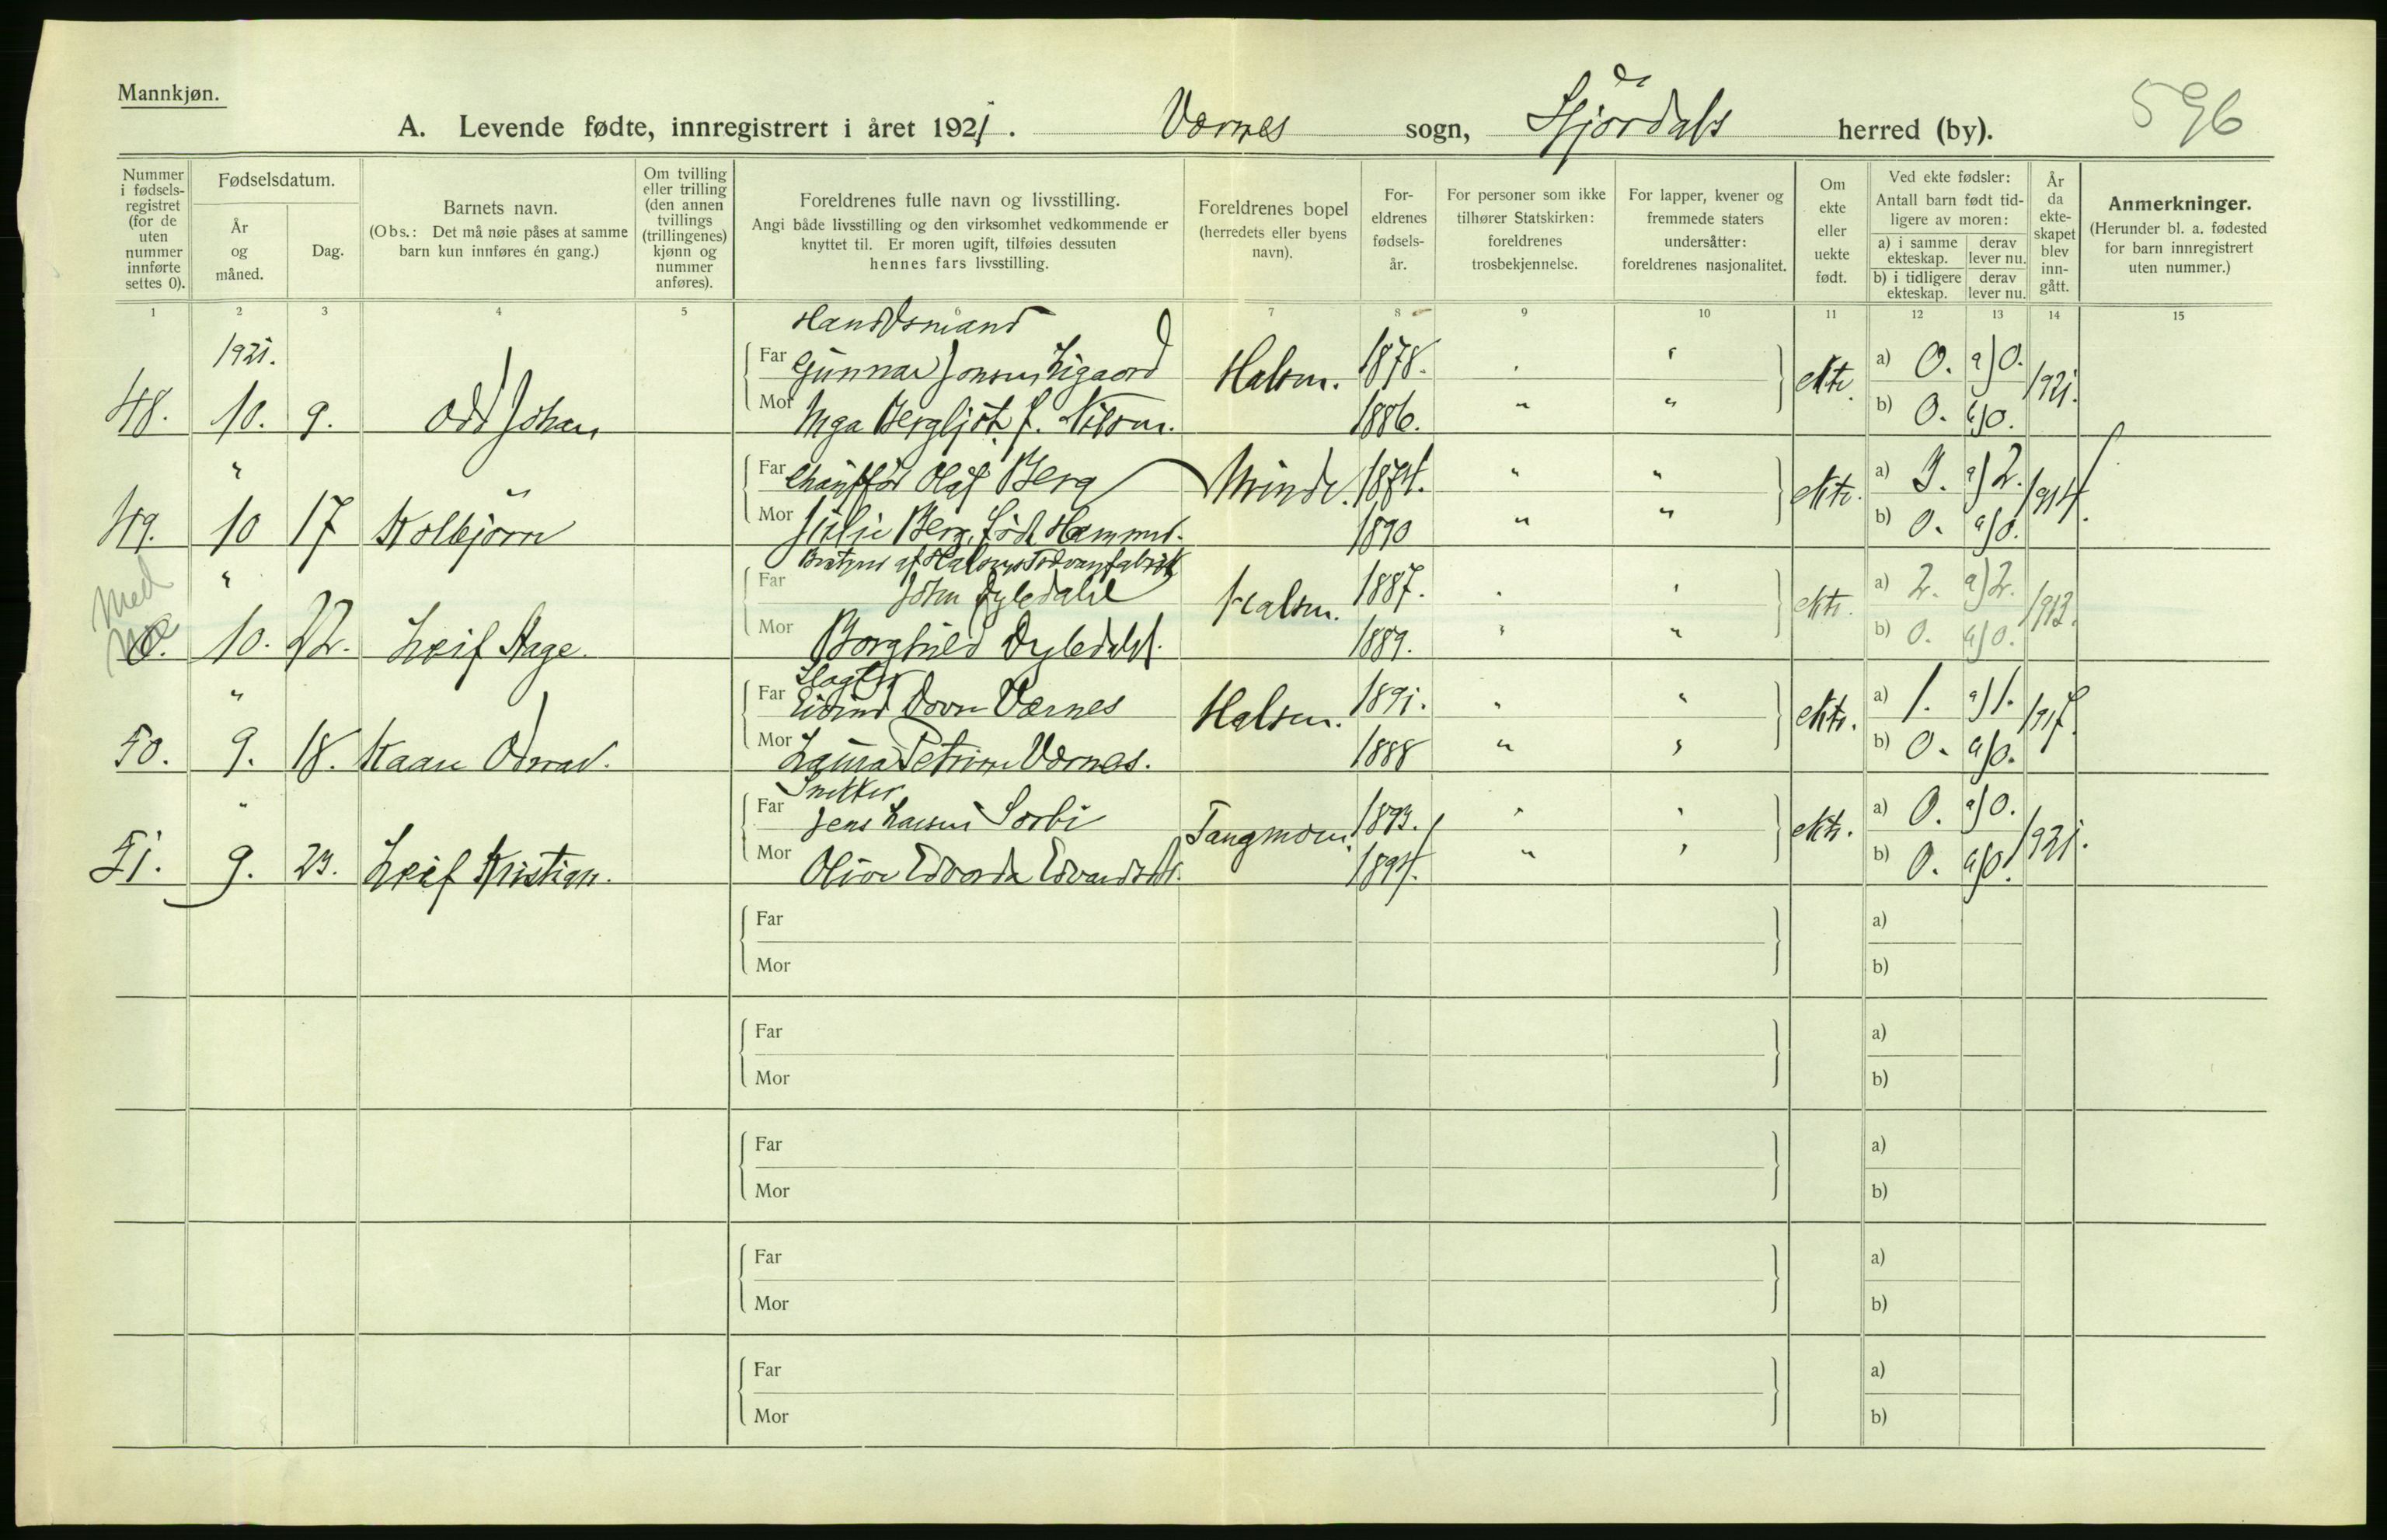 Mannkjøn.
A. Levende fødte, innregistrert i året 1921. Værnes sogn, Stjørdals herred (by).
596
Nummer i fødsels-registret (for de uten nummer innførte settes 0).
Fødselsdatum.
År og måned.
Dag.
Barnets navn.
(Obs.: Det må nøie påses at samme barn kun innføres én gang.)
Om tvilling eller trilling (den annen tvillings (trillingenes) kjønn og nummer anføres).
Foreldrenes fulle navn og livsstilling.
Angi både livsstilling og den virksomhet vedkommende er knyttet til. Er moren ugift, tilføies dessuten hennes fars livsstilling.
Foreldrenes bopel (herredets eller byens navn).
For-eldrenes fødsels-år.
For personer som ikke tilhører Statskirken: foreldrenes trosbekjennelse.
For lapper, kvener og fremmede staters undersåtter: foreldrenes nasjonalitet.
Om ekte eller uekte født.
Ved ekte fødsler: Antall barn født tid-ligere av moren:
a) i samme ekteskap. derav lever nu.
b) i tidligere ekteskap. derav lever nu.
År da ekte-skapet blev inn-gått.
Anmerkninger.
(Herunder bl. a. fødested for barn innregistrert uten nummer.)
1 2 3 4 5 6 7 8 9 10 11 12 13 14 15
1921.
Far Gunnar Jonsen Halsen. 1878. " ekte. a) 0. a) 0. 1921.
48. 10. 9. Odd Johan Mor Inga Bergljot f. 1886. " " b) 0. b) 0.
" Far Chauffør Olaf Berg 1874. " " ekte. a) 3. a) 2. 1914.
49. 10 17 Kolbjørn Mor Julie Berg, født 1890 " " b) 0. a) 0.
Med
" Far John Halsen. 1887. " " ekte. a) 2. a) 2. 1913.
0. 10. 22. Leif Aage. Mor Borghild 1889. " " b) 0. a) 0.
Slagter
" Far Værnes Halsen. 1891. " " ekte. a) 1. a) 1. 1917.
50. 9. 18. Kaare Mor Laura Petrine Værnes. 1888 " " b) 0. a) 0.
Snekker
" Far Jens Larsen Sorbi Tangmoen. 1893. " " ekte. a) 0. a) 0. 1921.
51. 9. 23. Leif Kristian. Mor 1894. " " b) 0. a) 0.
Far a)
Mor b)
Far a)
Mor b)
Far a)
Mor b)
Far a)
Mor b)
Far a)
Mor b)